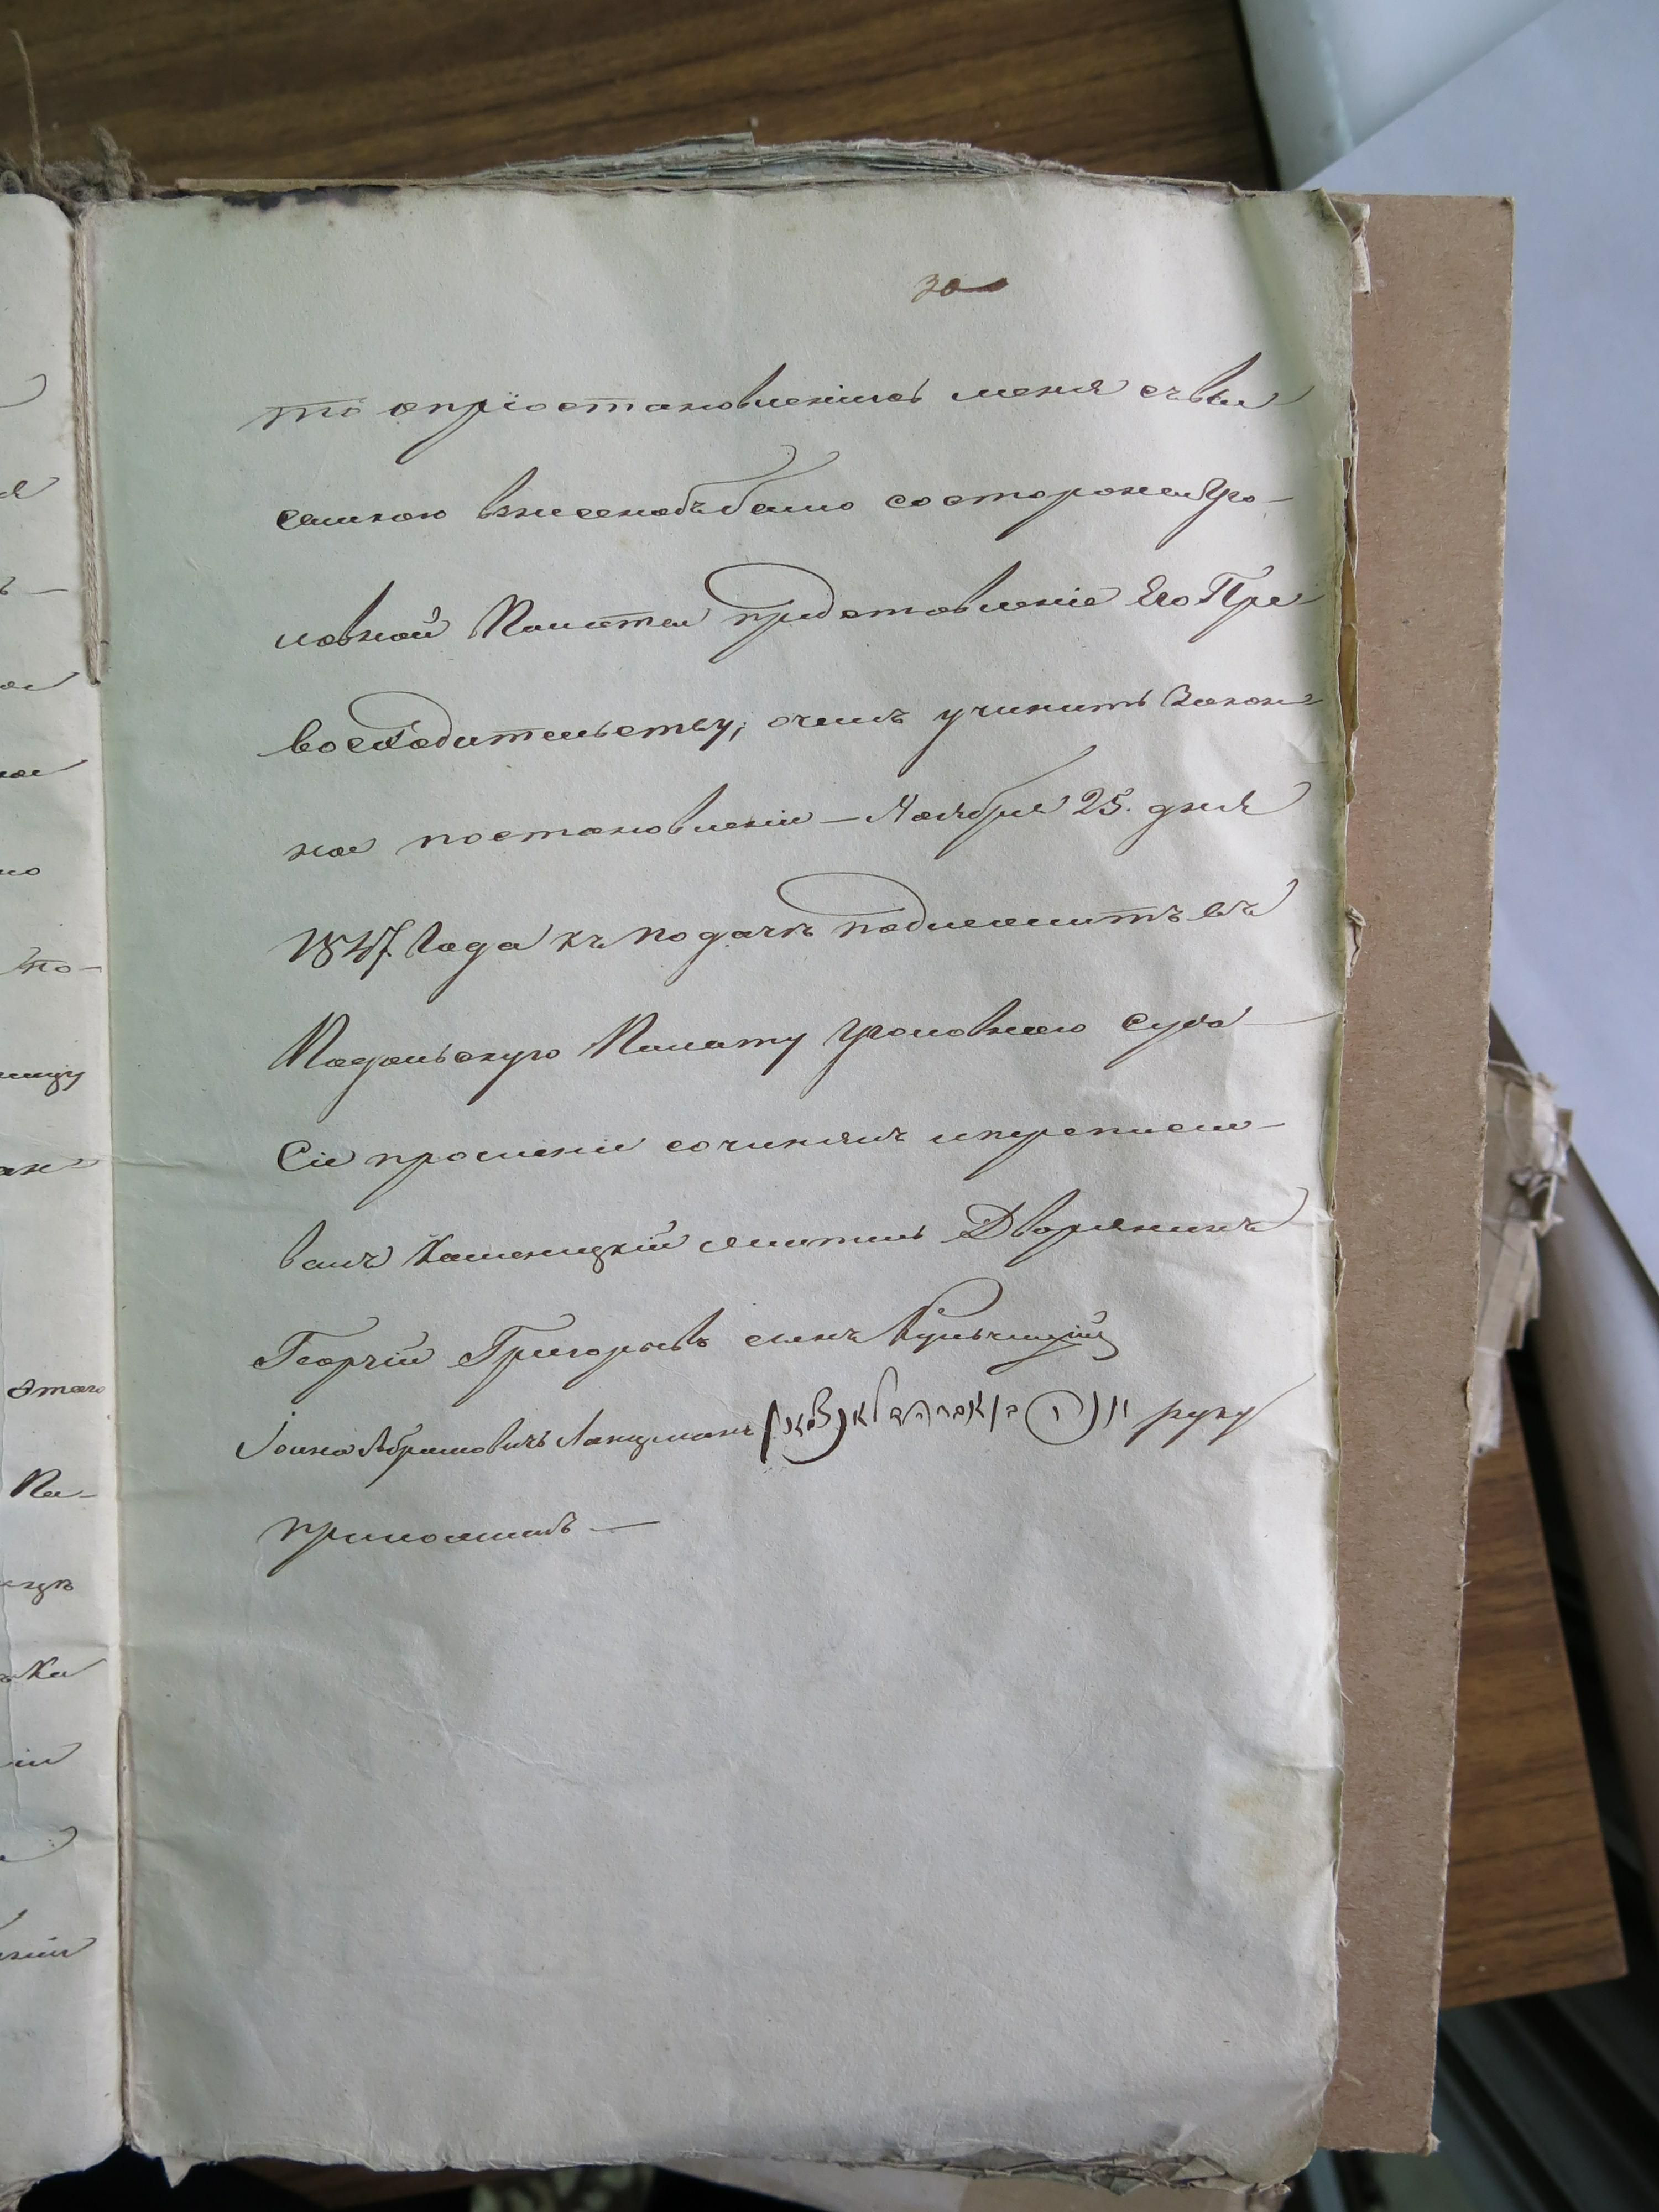 30
то опріостановленіи меня съвы
сылкою внесенобъбыло состороны Уго-
ловной Палаты представленіе Его Пре
восходительству, очемъ учинить Закон
ное постановленіи — Ноября 25. дня
1847. Года къ подачѣ подлежитъ въ
Подольскую Палату Уголовного Суда
Сіе прошеніе сочинялъ иперeписы-
валъ Каменецкій житель Дворянинъ
Георгій Григорьевъ сынъ Кульчицкій
Іона Абрамовичъ Ланцманъ יונה בן אברהם לאנצמאן руку
приложилъ —
этого
Па-